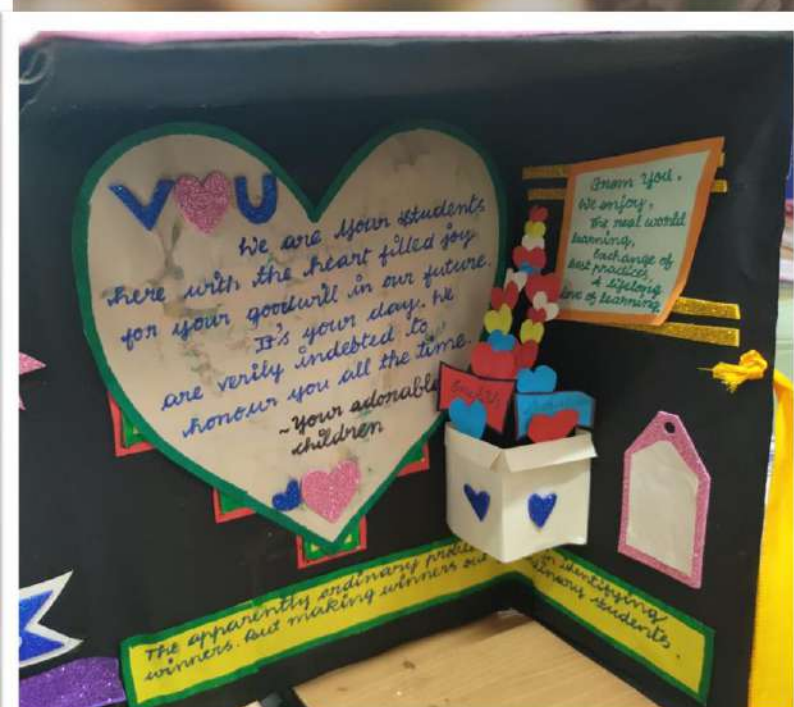 V U
We are your students
here with the heart filled joy
for your goodwill in our future.
It's your day. We
are verily indebted to
honour you all the time.
~ your adorable
children
From you,
We enjoy,
The real world
learning,
Exchange of
best practices,
A lifelong
love of learning.
The apparently ordinary identifying
winners. But making winners students.